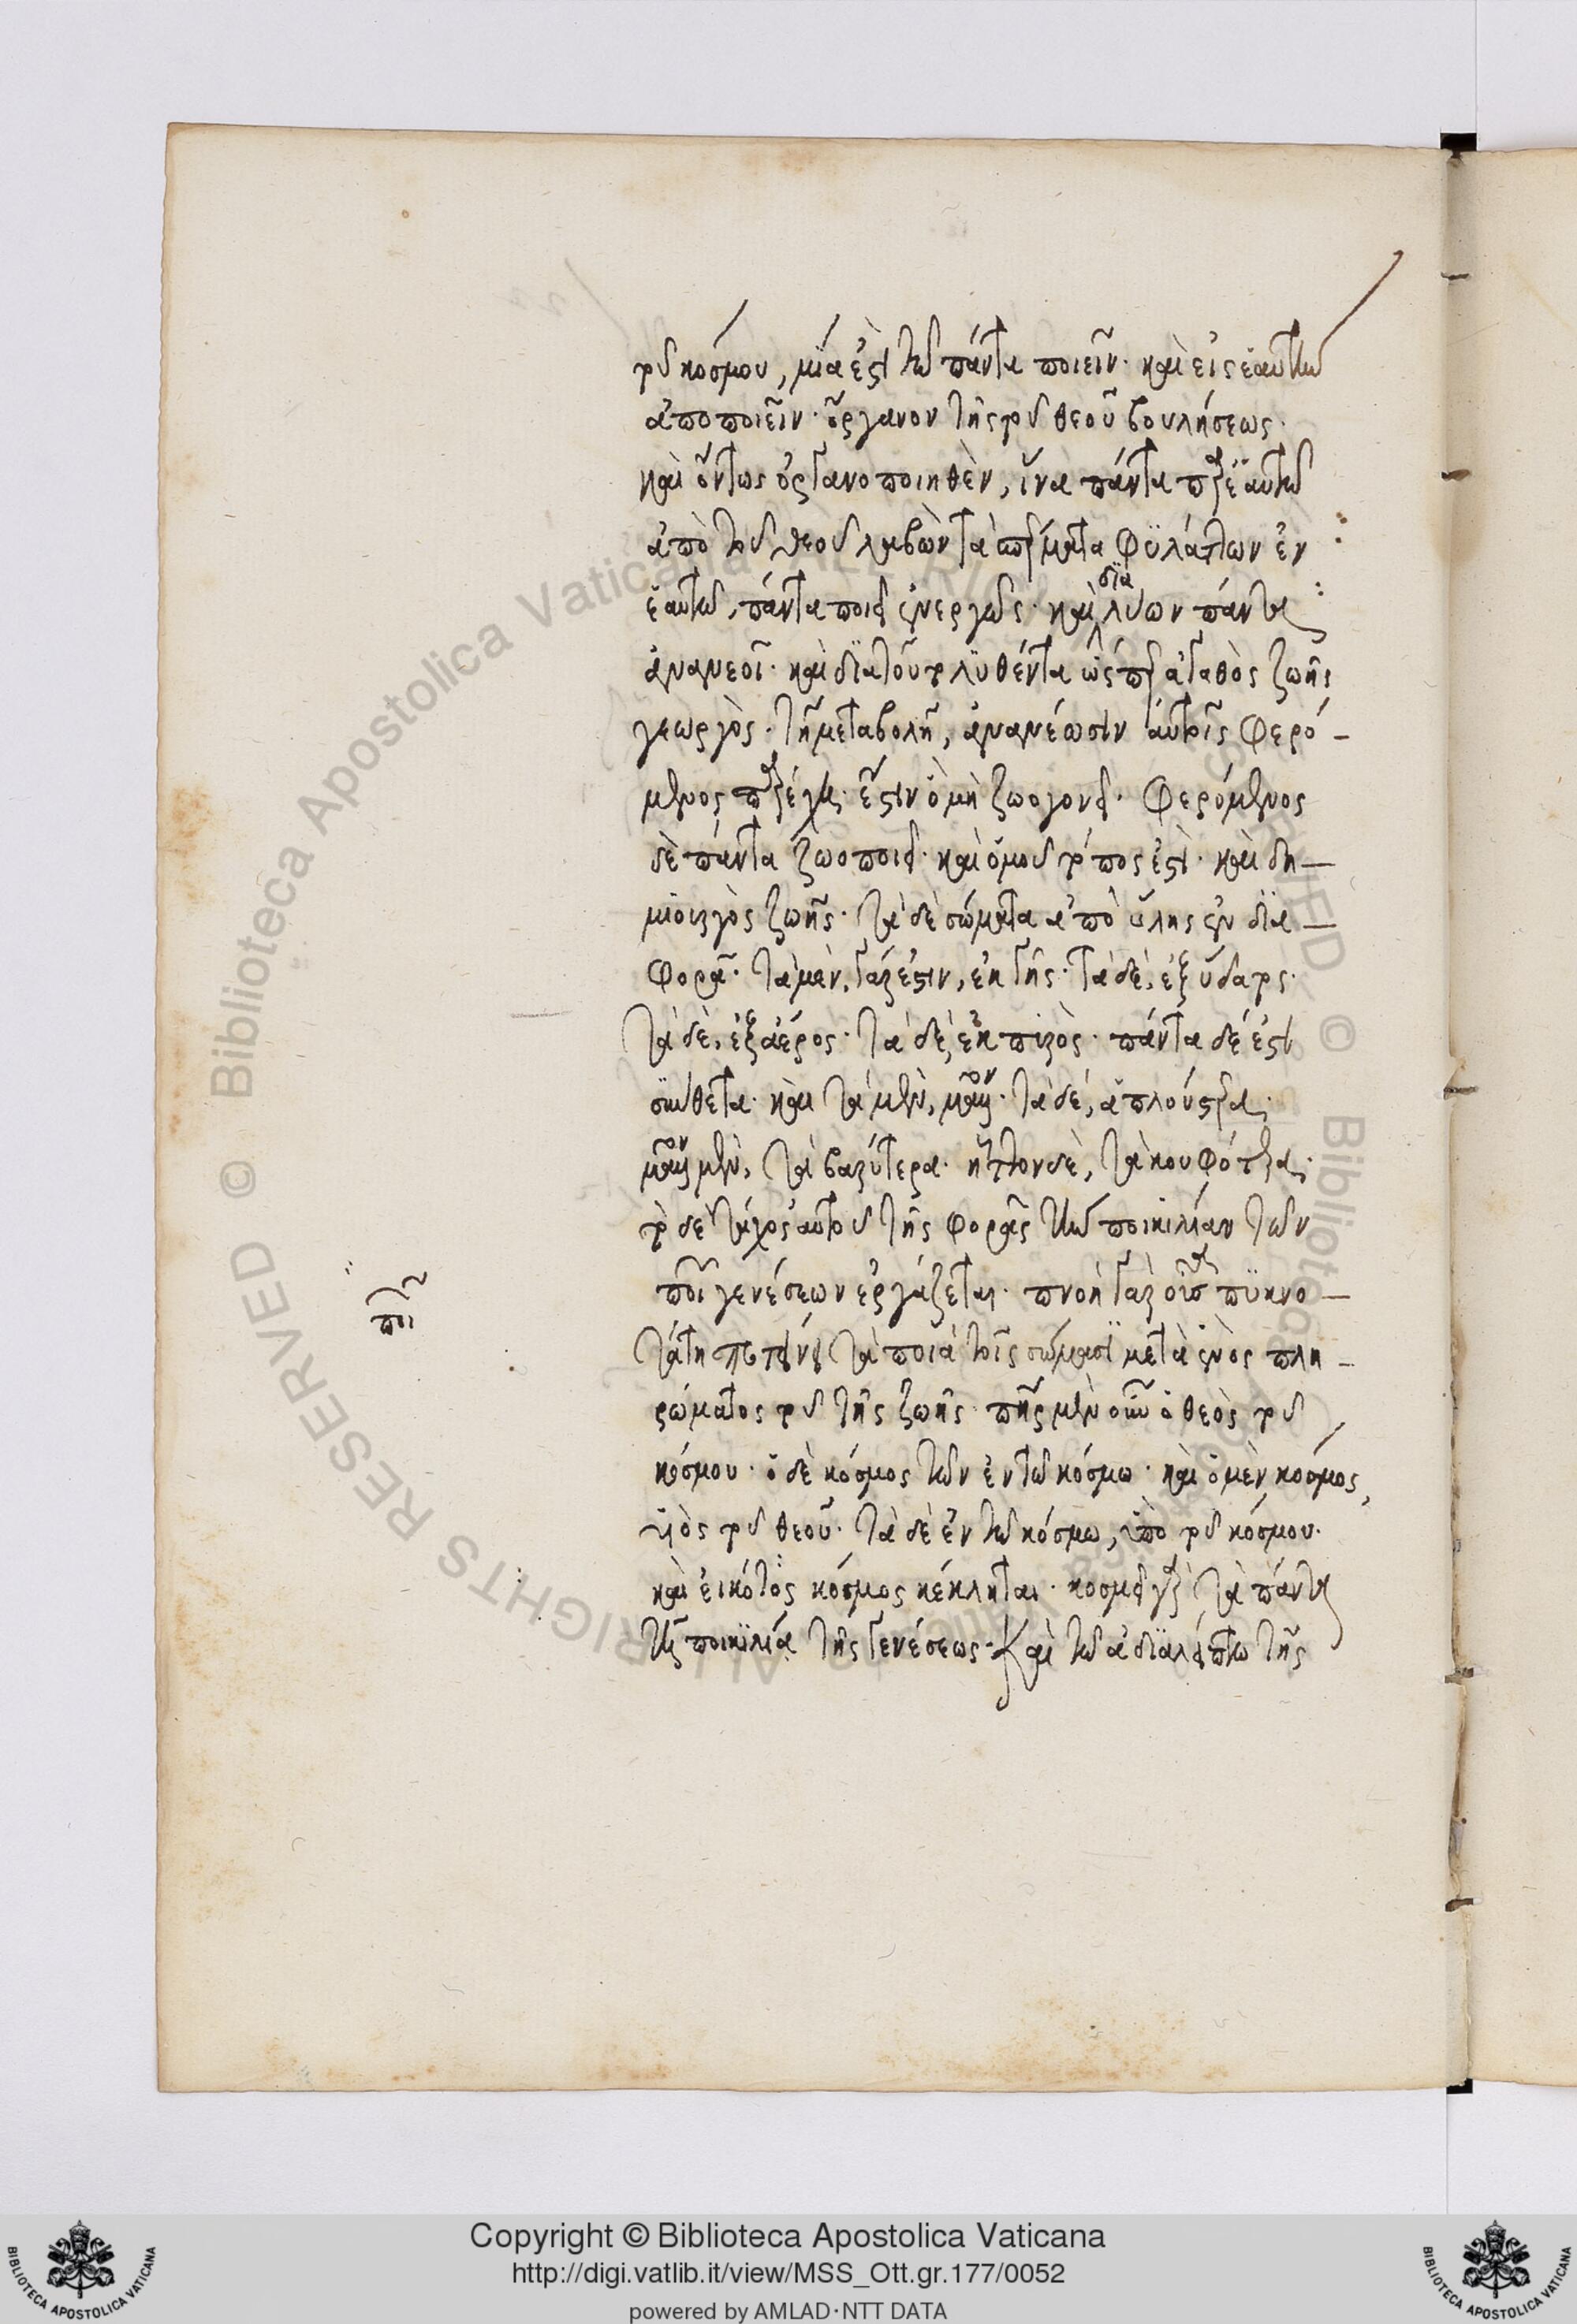 τοῦ κόσμου, μία ἐστὶ τῶ πάντα ποιεῖν· καὶ εἰς ἑαυτὴν
ἀποποιεῖν· ὄργανον τῆς τοῦ θεοῦ βουλήσεως·
καὶ ὄντως ὀργανοποιηθὲν, ἵνα πάντα παρ' ἑαυτῶ
ἀπὸ τοῦ θεοῦ λαβὼν τὰ σπέρματα φϋλάττων ἐν
ἑαυτῶ, πάντα ποιεῖ ἐνεργῶς· καὶ διαλύων πάντα
ἀνανεοῖ· καὶ διὰ τοῦτο λϋθέντα ὥσπερ ἀγαθὸς ζωῆς
γεωργὸς· τῆ μεταβολῆ, ἀνανέωσιν αὐτοῖς φερό-
μενος παρέχει· ἔστιν ὃ μὴ ζωογονεῖ· φερόμενος
δὲ πάντα ζωοποιεῖ· καὶ ὁμοῦ τόπος ἐστὶ· καὶ δη-
μϊουργὸς ζωῆς· τὰ δὲ σώματα ἀπὸ ὕλης ἐν δϊα-
φορᾶ· τὰ μὲν, γάρ ἐστιν, ἐκ γῆς· τὰ δὲ, ἐξ ὕδατος·
τὰ δὲ, ἐξ ἀέρος· τὰ δὲ, ἐκ πυρὸς· πάντα δέ ἐστι
σύνθετα· καὶ τὰ μὲν, μᾶλλον· τὰ δὲ, ἁπλούστερα·
μᾶλλον μὲν, τὰ βαρύτερα· ἧττον δὲ, τὰ κουφότερα·
τὸ δὲ τάχος αὐτοῦ τῆς φορᾶς τὴν ποικιλίαν τῶν
ποι γενέσεων ἐργάζεται· πνοὴ γὰρ οὖσα πϋκνο-
τάτη προτείνει τὰ ποιὰ τοῖς σώμασϊ μετὰ ἑνὸς πλη-
ρώματος τοῦ τῆς ζωῆς· πατὴρ μὲν οὖν ὁ θεὸς τοῦ
κόσμου· ὁ δὲ κόσμος τῶν ἐν τῶ κόσμω· καὶ ὁ μὲν κόσμος,
υἱὸς τοῦ θεοῦ· τὰ δὲ ἐν τῶ κόσμω, ὑπὸ τοῦ κόσμου·
καὶ εἰκότως κόσμος κέκληται· κοσμεῖ γὰρ τὰ πάντα
τῆ ποικϊλία τῆς γενέσεως· Καὶ τῶ ἀδϊαλείπτω τῆς
ποι
Copyright © Biblioteca Apostolica Vaticana
http://digi.vatlib.it/view/MSS_Ott.gr.177/0052
powered by AMLAD·NTT DATA